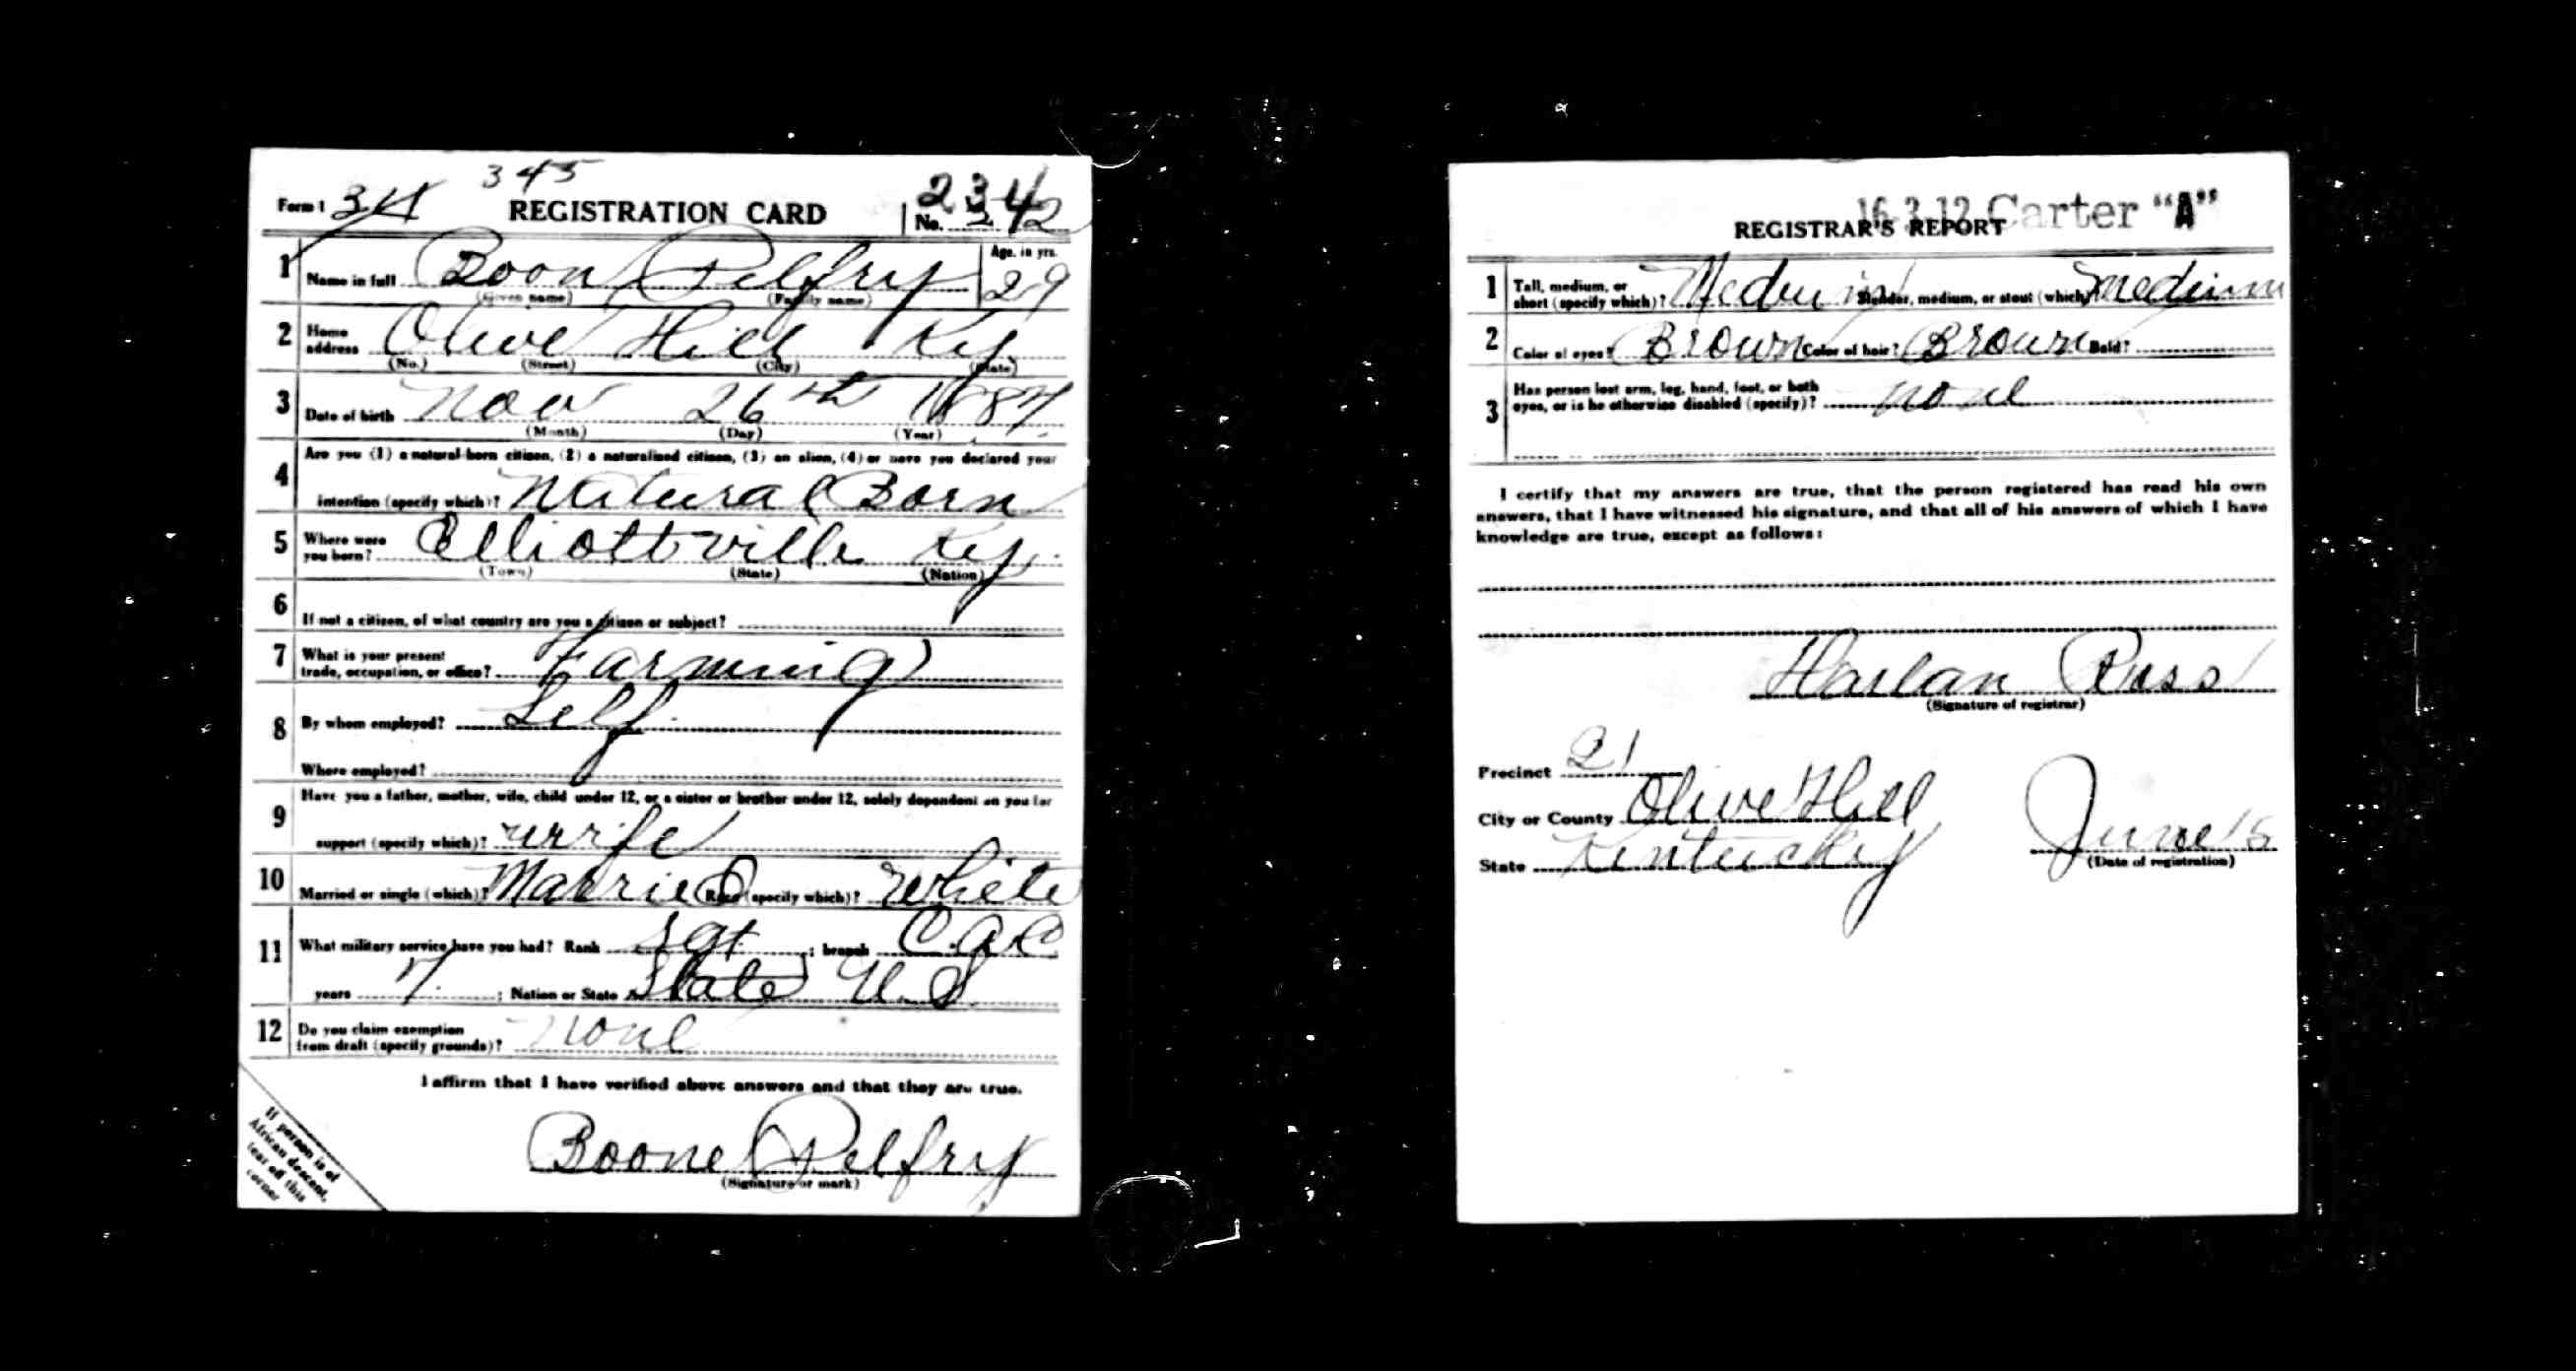 345
Form 1 34 REGISTRATION CARD No. 234 242
1 Name in full Boon Pelfry Age, in yrs. 29
(Given name) (Family name)
2 Home address Olive Hill Ky.
(No.) (Street) (City) (State)
3 Date of birth Nov 26th 1887
(Month) (Day) (Year)
4 Are you (1) a natural-born citizen, (2) a naturalized citizen, (3) an alien, (4) or have you declared your
intention (specify which)? Natural Born
5 Where were you born? Elliottville Ky.
(Town) (State) (Nation)
6 If not a citizen, of what country are you a citizen or subject?
7 What is your present
trade, occupation, or office? Farming
8 By whom employed? Self
Where employed?
9 Have you a father, mother, wife, child under 12, or a sister or brother under 12, solely dependent on you for
support (specify which)? Wife
10 Married or single (which)? Married Race (specify which)? White
11 What military service have you had? Rank Sgt ; branch C.A.C
years 7 ; Nation or State State U.S.
12 Do you claim exemption
from draft (specify grounds)? None
I affirm that I have verified above answers and that they are true.
Boone Pelfry
(Signature or mark)
If person is of
African descent,
tear off this
corner
16-3-12 Carter "A"
REGISTRAR'S REPORT
1 Tall, medium, or
short (specify which)? Medium Slender, medium, or stout (which)? Medium
2 Color of eyes? Brown Color of hair? Brown Bald?
3 Has person lost arm, leg, hand, foot, or both
eyes, or is he otherwise disabled (specify)? None
I certify that my answers are true, that the person registered has read his own
answers, that I have witnessed his signature, and that all of his answers of which I have
knowledge are true, except as follows:
Harlan Ross
(Signature of registrar)
Precinct 21
City or County Olive Hill
State Kentucky June
(Date of registration)